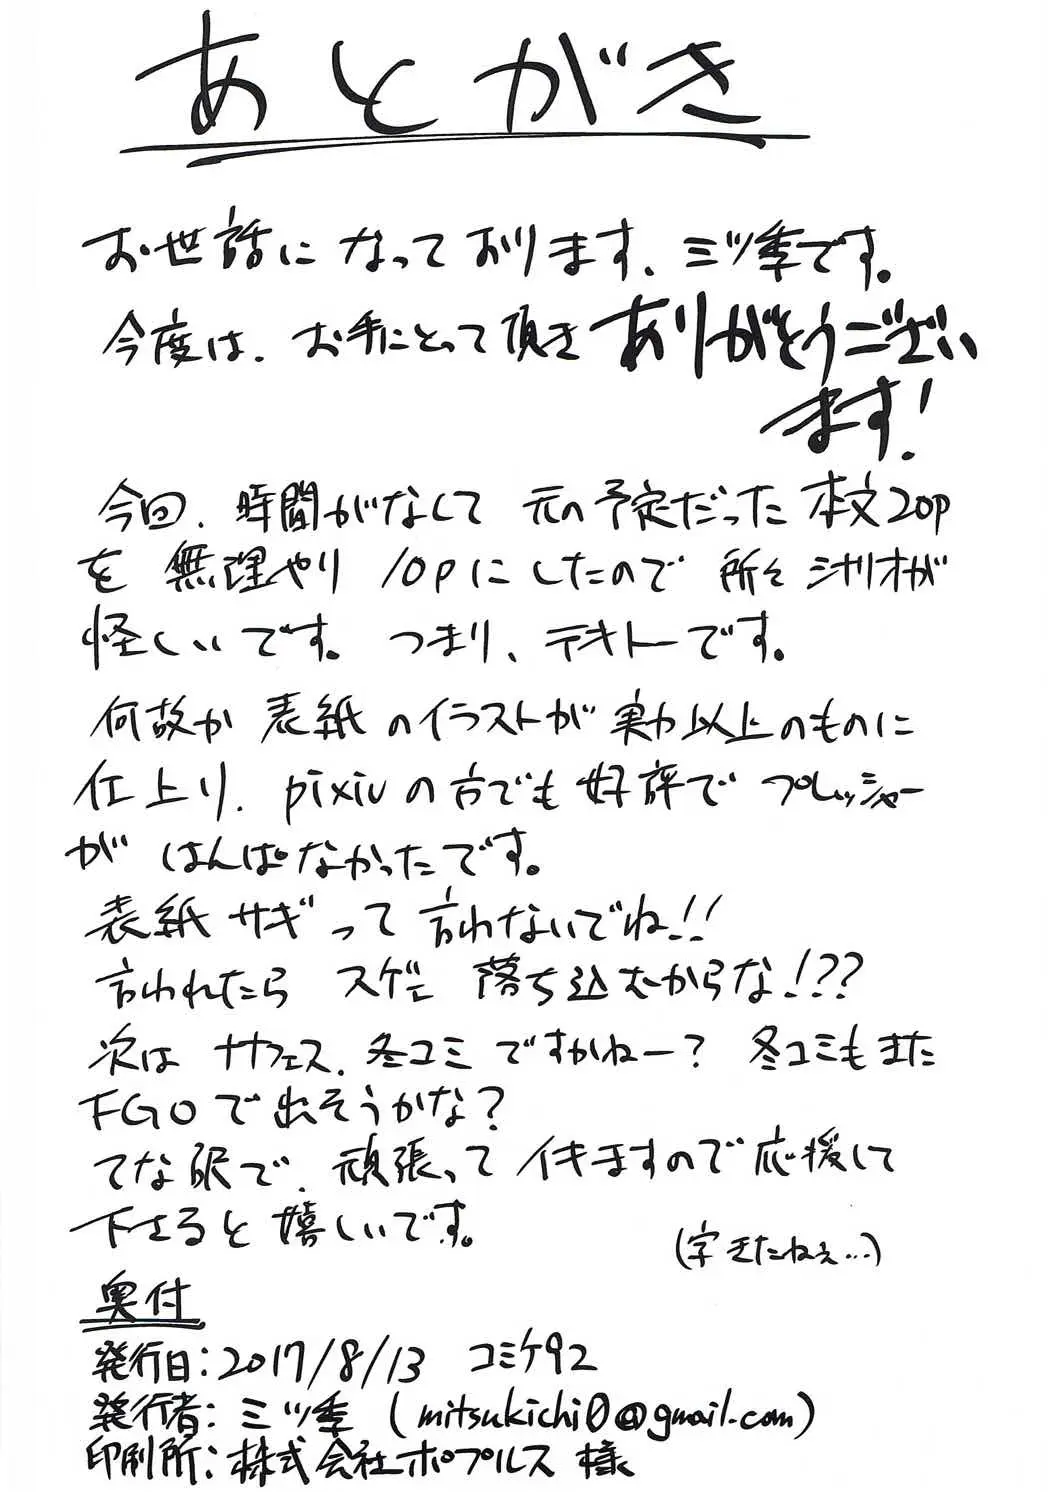 あとがき
お世話になっております、ミツ季です。
今度は、お手にとって頂きありがとうござい
ます!
今回、時間がなくて 元の予定だった 本文20p
を 無理やり 10pにしたので 所々シナリオが
怪しいです。 つまり、テキトーです。
何故か 表紙のイラストが 実力以上のものに
仕上り、pixivの方でも好評で プレッシャー
が はんぱなかったです。
表紙サギって 言わないでね!!
言われたら スゲェ 落ち込むからな!??
次は サナフェス、冬コミ ですかねー? 冬コミもまた
FGOで出そうかな?
てな訳で、頑張って イキますので応援して
下さると 嬉しいです。
(字きたねぇ…)
奥付
発行日:2017/8/13 コミケ92
発行者:ミツ季 (mitsukichi0@gmail.com)
印刷所:株式会社ポプルス 様